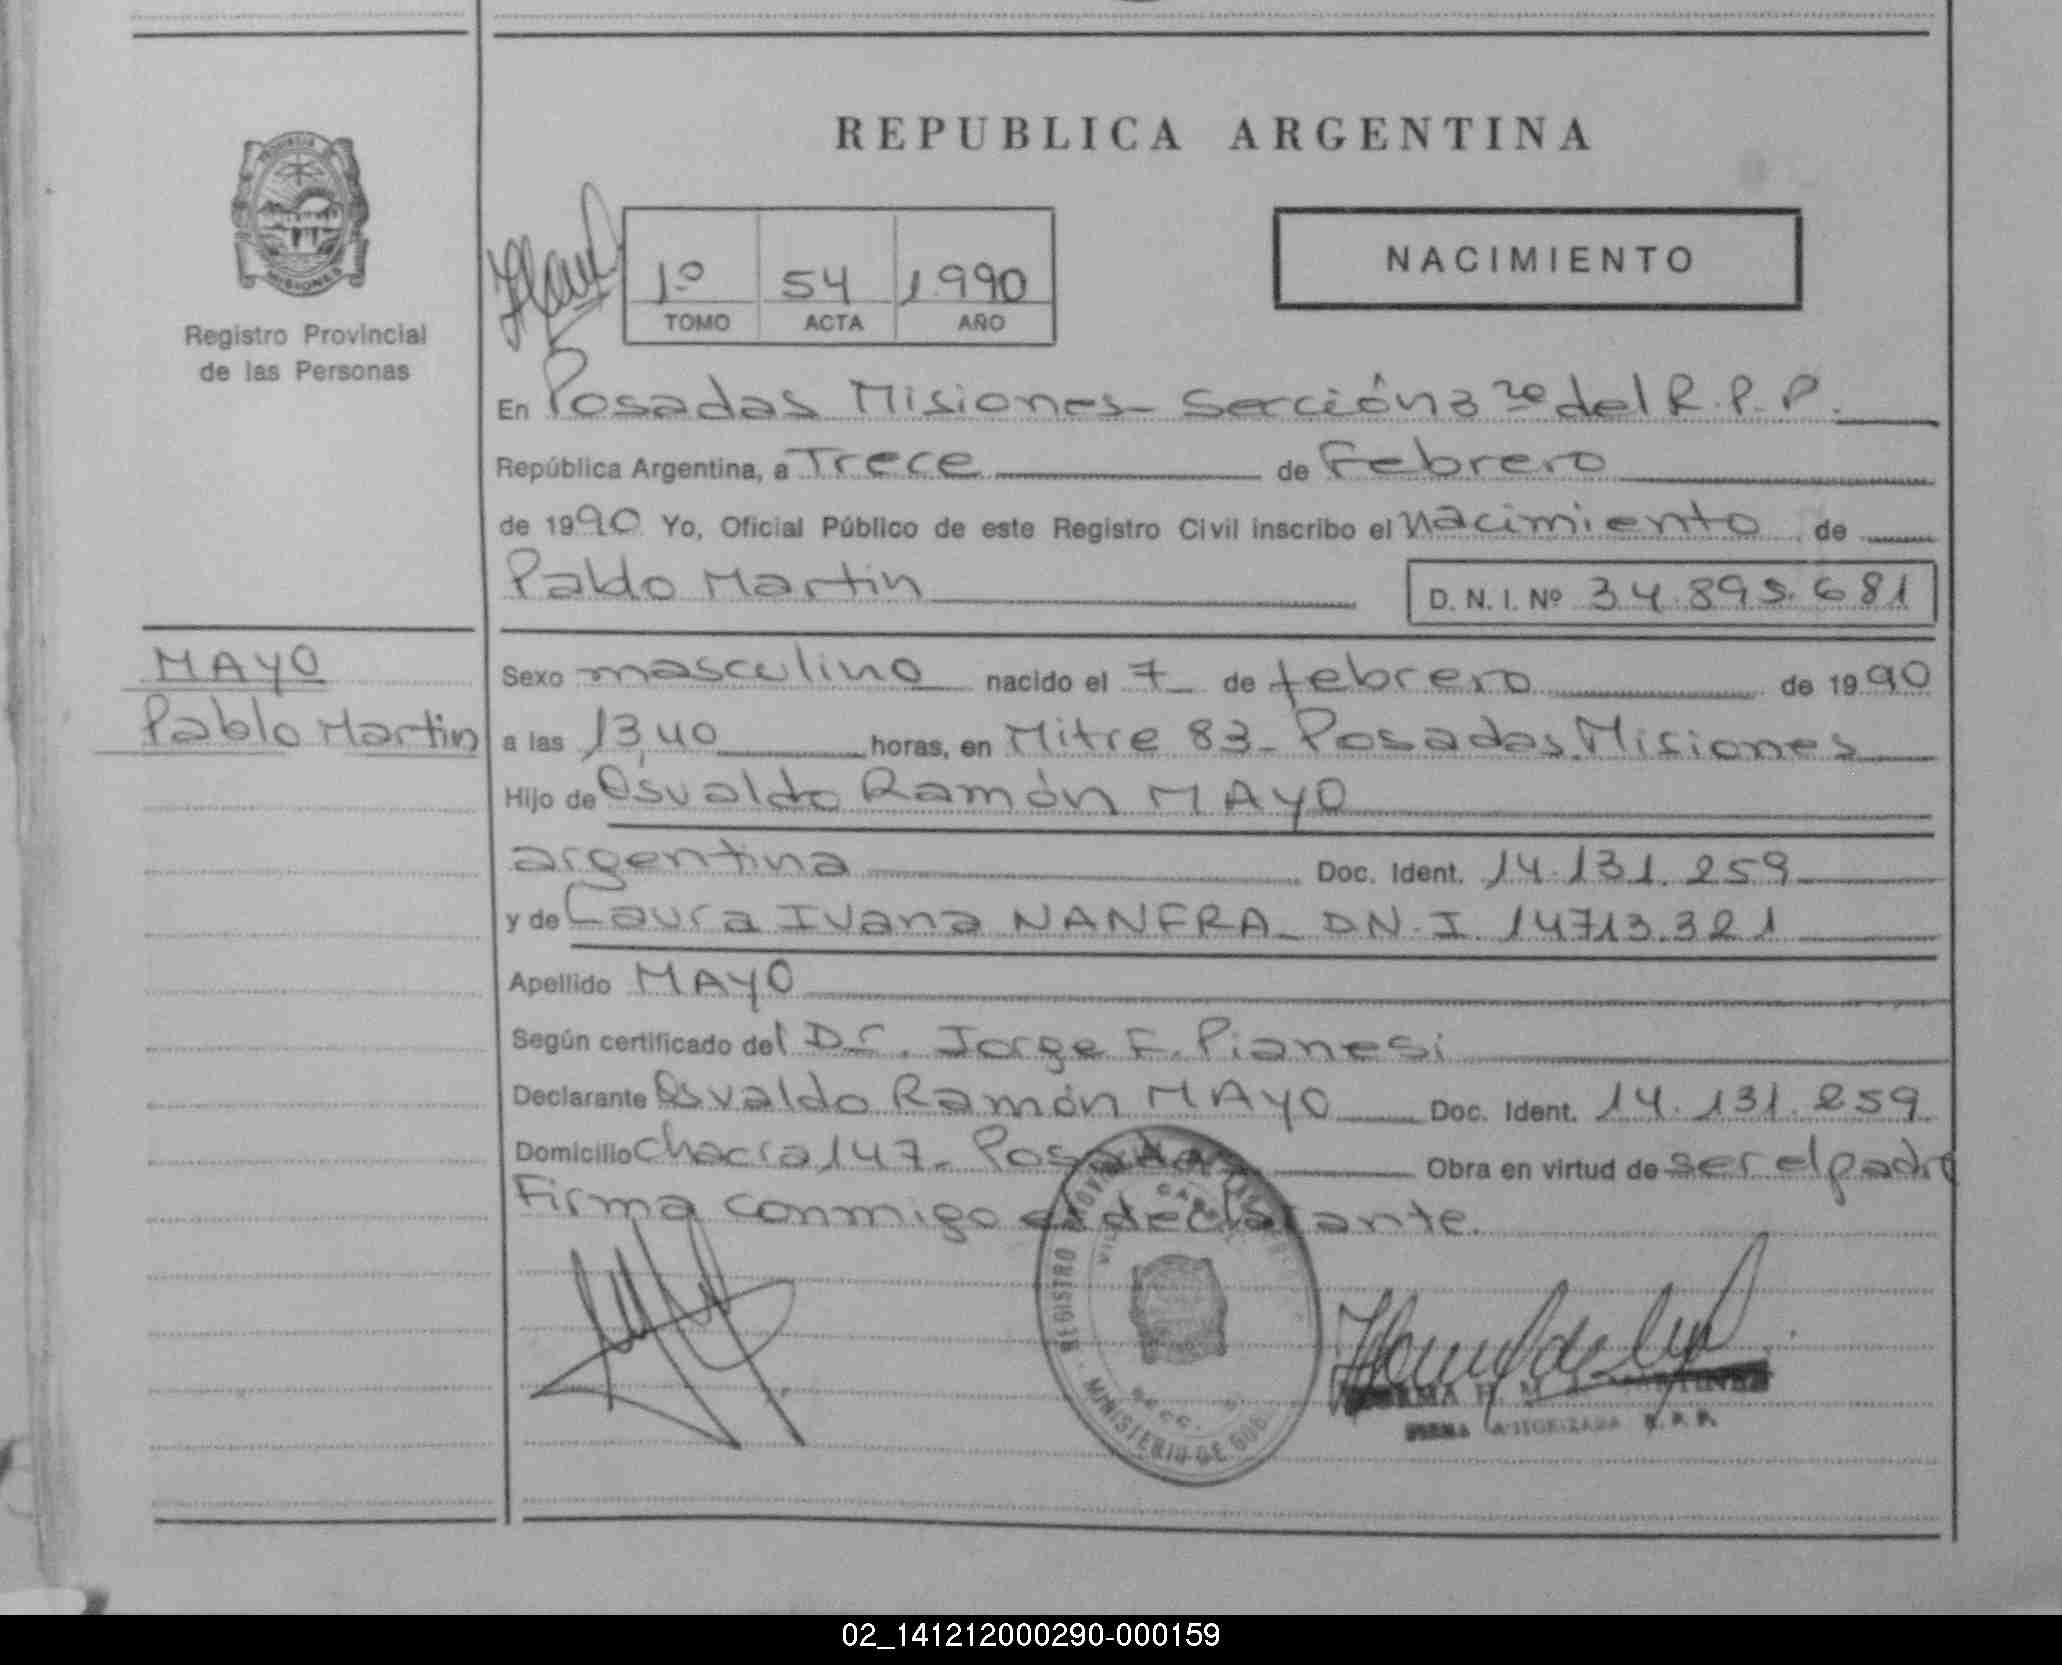 REPUBLICA ARGENTINA
PROVINCIA D MISIONES
Registro Provincial
de las Personas
1º 54 1990
TOMO ACTA AÑO
NACIMIENTO
En Posadas Misiones - Sección 3ra del R.P.P.
República Argentina, a Trece de Febrero
de 1990 Yo, Oficial Público de este Registro Civil inscribo el nacimiento de
Pablo Martin D. N. I. Nº 34.895.681
MAYO
Pablo Martin
Sexo masculino nacido el 7 de febrero de 1990
a las 13,40 horas, en Mitre 83 - Posadas. Misiones
Hijo de Osvaldo Ramón MAYO
argentina Doc. Ident. 14.131.259
y de Laura Ivana NANFRA - D.N.I 14713.321
Apellido MAYO
Según certificado del Dr. Jorge F. Pianesi
Declarante Osvaldo Ramón MAYO Doc. Ident. 14.131.259
Domicilio Chacra 147 - Posadas Obra en virtud de ser el padre
Firma conmigo el declarante.
REGISTRO MINISTERIO DE GOB.
FIRMA AUTORIZADA R. P. P.
02_141212000290-000159